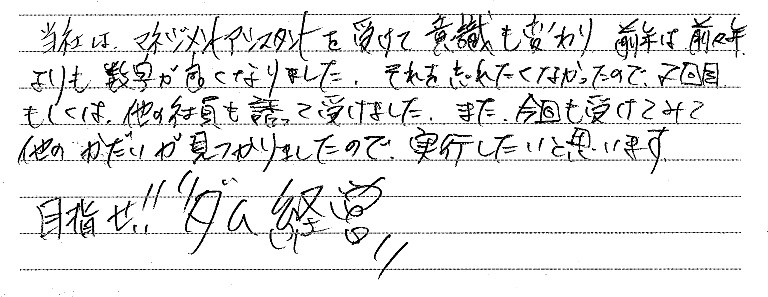 当社は、マネジメントアシスタントを受けて意識も変わり 前年は前々年
よりも数字が良くなりました。それを忘れたくなかったので、2回目
もしくは、他の社員も誘って受けました。また、今回も受けてみて
他のかだいが見つかりましたので、実行したいと思います
目指せ!! "ダム経営"